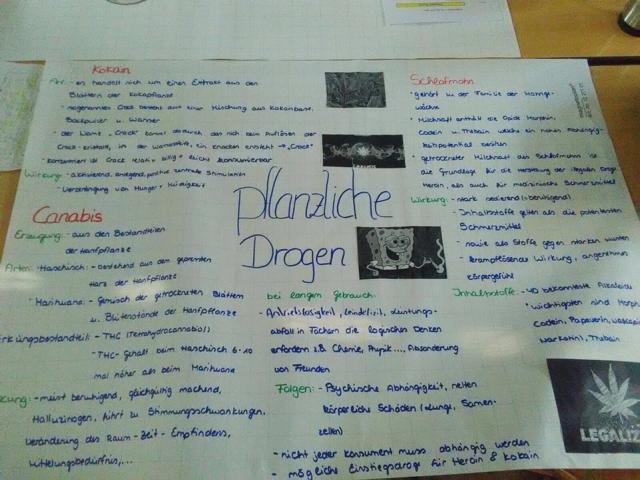 Kokain
Art: - es handelt sich um einen Extrakt aus den
Blättern der Kokapflanze
- sogenanntes Crack besteht aus einer Mischung aus Kokainbase,
Backpulver u. Wasser
- der Name "Crack" kommt dadurch, das sich beim Auflösen der
Crack-kristalle, in der ein knacken entsteht → "Crack"
- konsumiert ist Crack relativ billig + leicht konsumierbar
Wirkung: - aktivierend, anregend, positive zentrale Stimulation
- Verdrängung von Hunger + Müdigkeit
Canabis
Erzeugung: - aus den Bestandteilen
der Hanfpflanze
Arten: - Haschisch: - bestehend aus dem gepressten
Harz der Hanfpflanze
- Marihuana: - Gemisch der getrockneten Blättern
u. Blütenstände der Hanfpflanze
rkungsbestandteil: - THC (Tetrahydrocannabiol)
- THC-Gehalt beim Haschisch 6-10
mal höher als beim Marihuana
kung: - meist beruhigend, gleichgültig machend,
Halluzinogen, führt zu Stimmungsschwankungen,
Veränderung des Raum-Zeit-Empfindens,
Mitteilungsbedürfnis,...
pflanzliche
Drogen
bei langem Gebrauch:
- Antriebslosigkeit, Leistungs-
abfall in Fächern die logisches Denken
erfordern z.B. Chemie, Physik..., Absonderung
von Freunden
Folgen: - Psychische Abhängigkeit, selten
körperliche Schäden (Lunge, Samen-
zellen)
- nicht jeder Konsument muss abhängig werden
- mögliche Einstiegsdroge für Heroin & Kokain
Schlafmohn
- gehört zu der Familie der Mohnge-
wächse
- Milchsaft enthält die Opide Morphin,
Codein u. Thebain welche ein hohes Abhängig-
keitspotential besitzen
- getrockneter Milchsaft des Schlafmohn ist
die Grundlage für die Herstellung der illegalen Droge
Heroin, als auch für medizinische Schmerzmittel
Wirkung: - stark sedierend (=beruhigend)
- Inhaltsstoffe gelten als die potentesten
Schmerzmittel
- sowie als Stoffe gegen starken Husten
- krampflösende Wirkung, angenehmes
Körpergefühl
Inhaltsstoffe: - 40 bekannte Alkaloide
- wichtigsten sind Morp
Codein, Papaverin,
Thebain
LEGALIZ